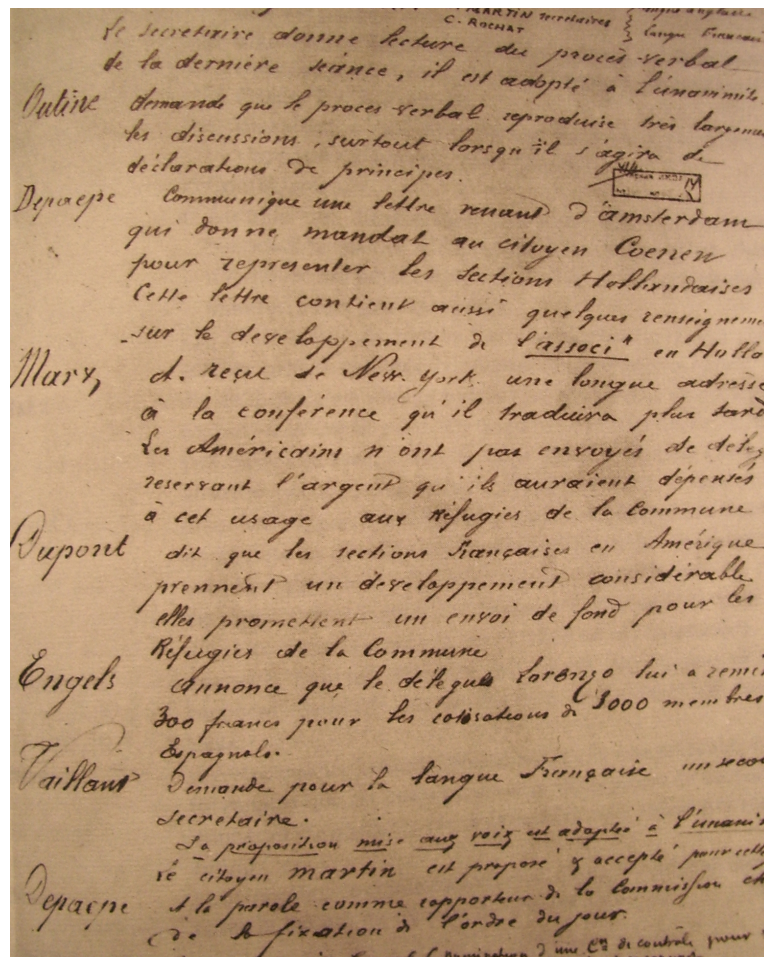 MARTIN secretaires langue
C. ROCHAT langue Francaise
Le secretaire donne lecture du procès-verbal
de la dernière séance, il est adopté à l'unanimité
Outine demande que le proces verbal reproduise très largement
les discussions, surtout lorsqu'il s'agira de
déclarations de principes.
Depaepe Communique une lettre venant d'amsterdam
qui donne mandat au citoyen Coenen
pour representer les sections Hollandaises
Cette lettre contient aussi quelques renseigneme
sur le developpement de l'associ^n en Holla
Marx, A reçu de New-york une longue adresse
à la conférence qu'il traduira plus tard
Les Américains n'ont pas envoyés de délég
reservant l'argent qu'ils auraient dépensés
à cet usage aux Réfugies de la Commune
Dupont dit que les sections Françaises en Amérique
prennent un developpement considérable
elles promettent un envoi de fond pour les
Réfugies de la Commune
Engels annonce que le délégué Lorenzo lui a remis
300 francs pour les cotisations de 3000 membres
Espagnols.
Vaillant Demande pour la langue Française un secon
secretaire.
La proposition mise aux voix est adoptée à l'unani
Le citoyen martin est proposé & accepté pour cette
Depaepe A la parole comme rapporteur de la Commission
de la fixation de l'ordre du jour.
nomination d'une C^on de contrôle pour